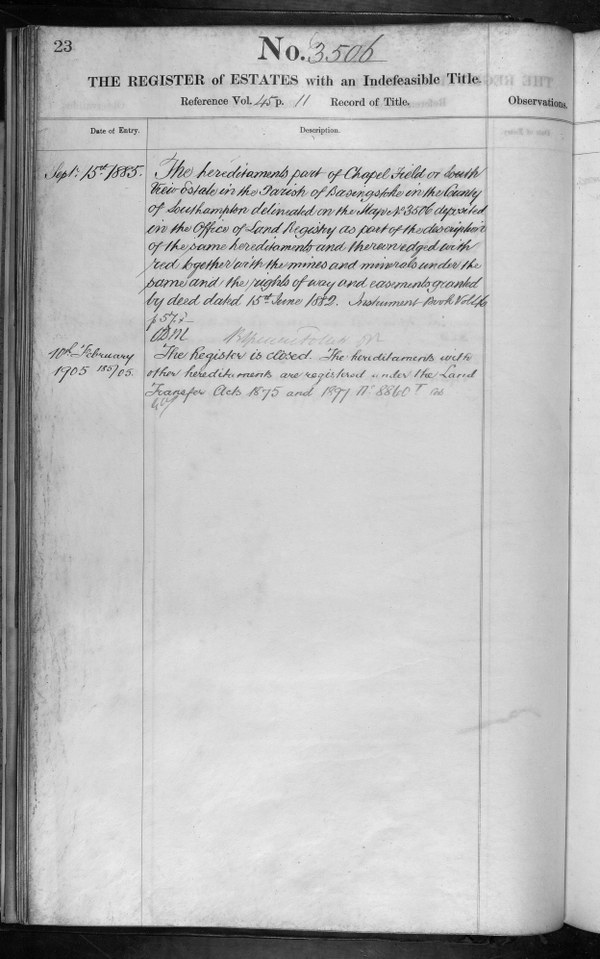 23
No. 3506
THE REGISTER of ESTATES with an Indefeasible Title.
Reference Vol. 45 p. 11 Record of Title.
Observations.
Date of Entry.
Description.
Sept. 15th 1885.
The hereditaments part of Chapel Field or South
View Estate in the Parish of Basingstoke in the County
of Southampton delineated on the Map No 3506 deposited
in the Office of Land Registry as part of the description
of the same hereditaments and thereon edged with
red together with the mines and minerals under the
same and the rights of way and easements granted
by deed dated 15th June 1882. Instrument Book Vol
p 577
10th February
1905 185/05.
The Register is closed. The hereditaments with
other hereditaments are registered under the Land
Transfer Acts 1875 and 1897 No 8860